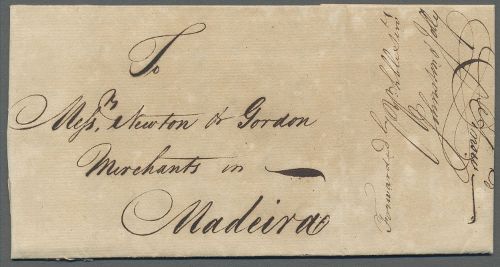 To
Messrs. Newton & Gordon
Merchants in
Madeira
Forwarded by